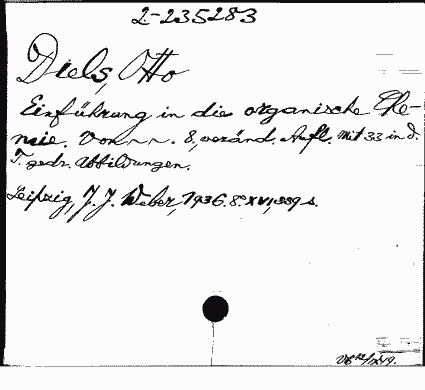 2-235283
Diels, Otto
Einführung in die organische Che-
mie. Von n. n. 8, veränd. Aufl. Mit 33 in d.
T. gedr. Abbildungen.
Leipzig, J. J. Weber, 1936. 8° XVI, 339 s.